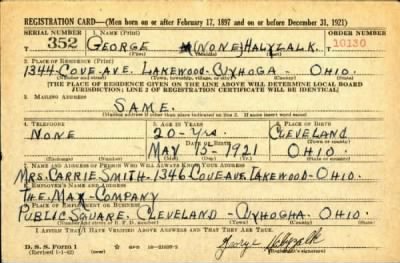 REGISTRATION CARD—(Men born on or after February 17, 1897 and on or before December 31, 1921)
SERIAL NUMBER 1. NAME (Print) ORDER NUMBER
T 352 GEORGE (NONE) HALYZALK 10130
(First) (Middle) (Last)
2. PLACE OF RESIDENCE (Print)
1344-COVE-AVE. LAKEWOOD-CUYHOGA - OHIO.
(Number and street) (Town, township, village, or city) (County) (State)
[THE PLACE OF RESIDENCE GIVEN ON THE LINE ABOVE WILL DETERMINE LOCAL BOARD
JURISDICTION; LINE 2 OF REGISTRATION CERTIFICATE WILL BE IDENTICAL]
3. MAILING ADDRESS
SAME.
[Mailing address if other than place indicated on line 2. If same insert word same]
4. TELEPHONE 5. AGE IN YEARS 6. PLACE OF BIRTH
NONE 20-Yrs. CLEVELAND
DATE OF BIRTH (Town or county)
MAY 15-1921 OHIO.
(Exchange) (Number) (Mo.) (Day) (Yr.) (State or country)
7. NAME AND ADDRESS OF PERSON WHO WILL ALWAYS KNOW YOUR ADDRESS
MRS. CARRIE SMITH-1346 COVE AVE. LAKEWOOD-OHIO.
8. EMPLOYER'S NAME AND ADDRESS
THE MAY-COMPANY
9. PLACE OF EMPLOYMENT OR BUSINESS
PUBLIC SQUARE. CLEVELAND - CUYHOGHA. OHIO.
(Number and street or R. F. D. number) (Town) (County) (State)
I AFFIRM THAT I HAVE VERIFIED ABOVE ANSWERS AND THAT THEY ARE TRUE.
D. S. S. Form 1 GPO
(Revised 1-1-42) (over) George Halyzalk